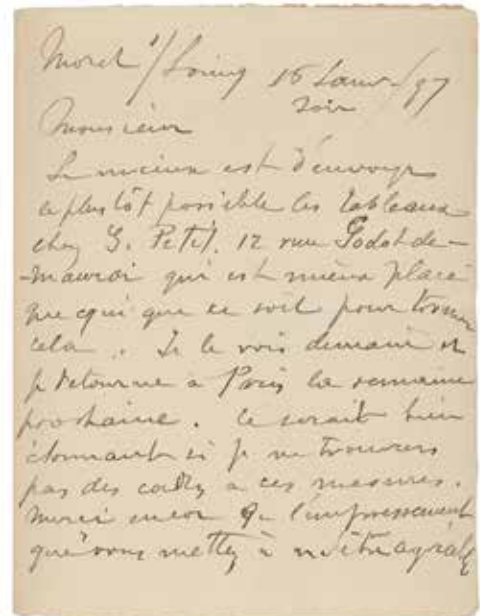 Moret s/Loing 15 Janv-/97
Soir
Monsieur
Le mieux est d'envoyer
le plus tôt possible les tableaux
chez G. Petit, 12 rue Godot de-
-Mauroi qui est mieux placé
que qui que ce soit pour
cela. Je le vois demain et
je retourne à Paris la semaine
prochaine. Ce serait bien
étonnant si je ne trouvers
pas des cadres à ces mesures.
Merci encor de l'empressement
que vous mettez à m'être agréable